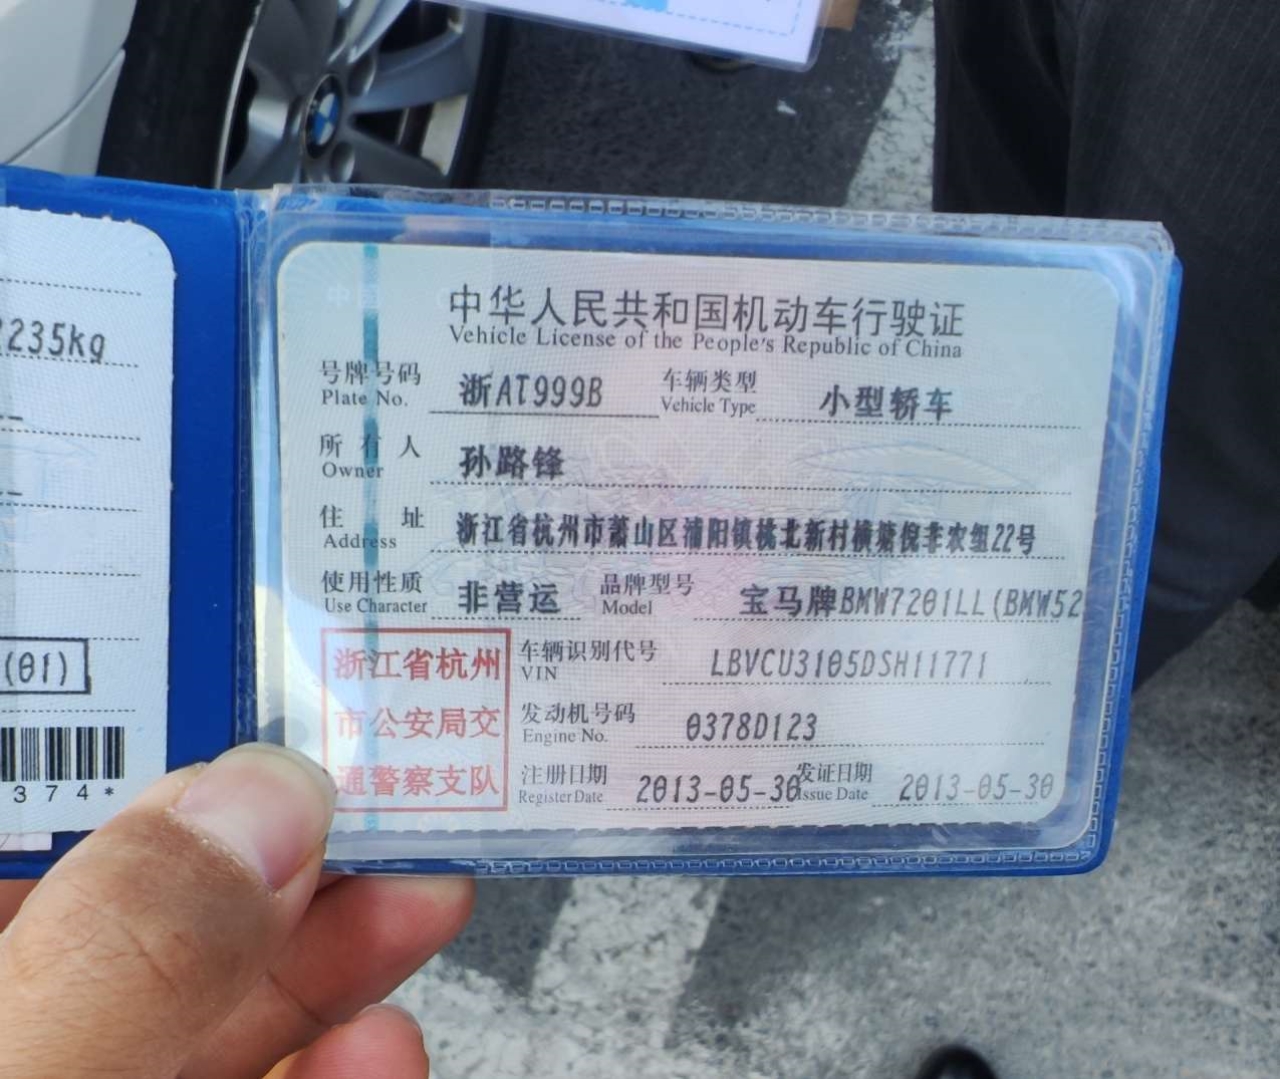 2235kg
(01)
374*
中华人民共和国机动车行驶证
Vehicle License of the People's Republic of China
号牌号码 浙AT999B 车辆类型 小型轿车
Plate No. Vehicle Type
所有人 孙路锋
Owner
住址 浙江省杭州市萧山区浦阳镇桃北新村横塘倪非农组22号
Address
使用性质 非营运 品牌型号 宝马牌BMW7201LL(BMW52
Use Character Model
浙江省杭州
市公安局交
通警察支队
车辆识别代号 LBVCU3105DSH11771
VIN
发动机号码 0378D123
Engine No.
注册日期 2013-05-30 发证日期 2013-05-30
Register Date Issue Date